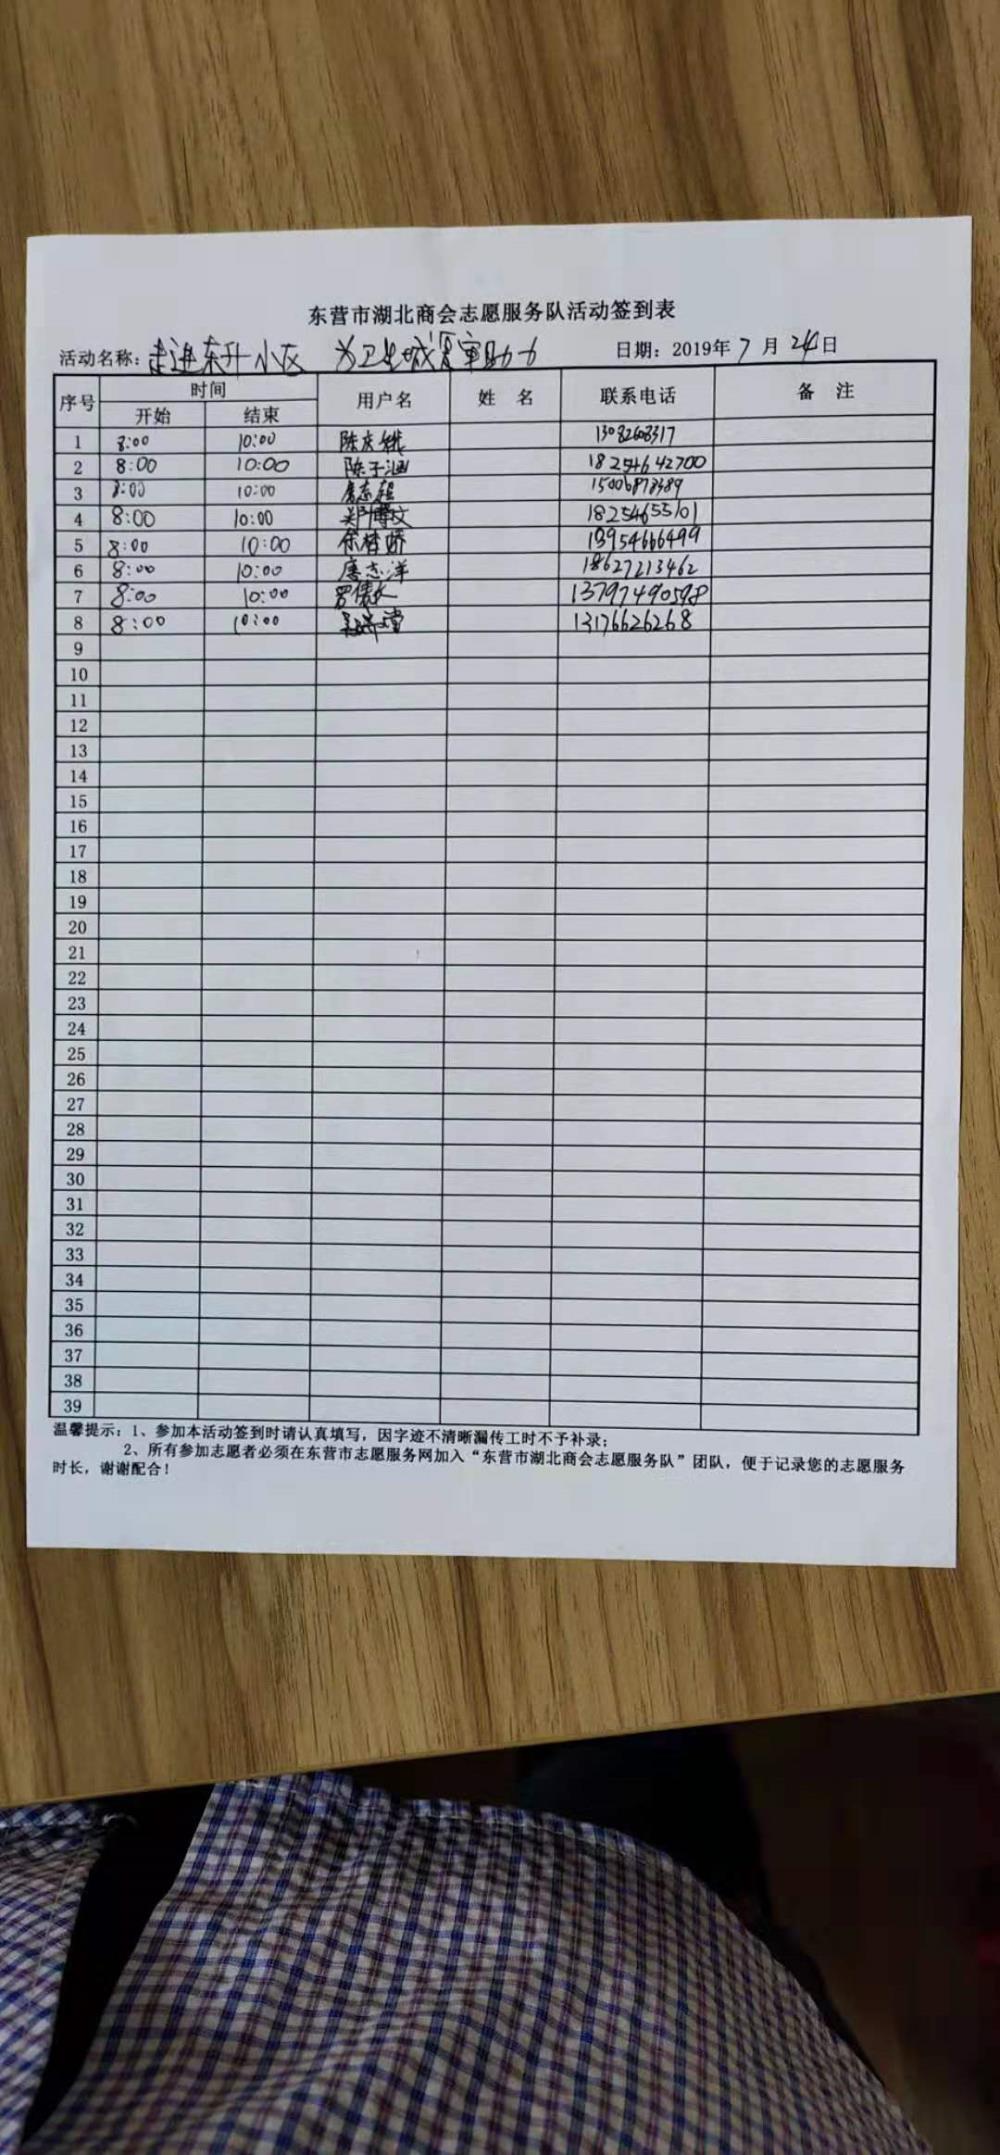 东营市湖北商会志愿服务队活动签到表
活动名称：走进东升小区 为卫生城复审助力 日期：2019年7月24日
序号 时间 用户名 姓 名 联系电话 备 注
开始 结束
1 8:00 10:00 陈庆 13082608317
2 8:00 10:00 陈子涵 18254642700
3 8:00 10:00 唐志超
4 8:00 10:00 吴博文 18254655101
5 8:00 10:00 余梦娇 13954666499
6 8:00 10:00 唐志洋 18627213462
7 8:00 10:00 罗 13797490598
8 8:00 10:00 13176626268
9
10
11
12
13
14
15
16
17
18
19
20
21
22
23
24
25
26
27
28
29
30
31
32
33
34
35
36
37
38
39
温馨提示：1、参加本活动签到时请认真填写，因字迹不清晰漏传工时不予补录；
2、所有参加志愿者必须在东营市志愿服务网加入“东营市湖北商会志愿服务队”团队，便于记录您的志愿服务
时长，谢谢配合！